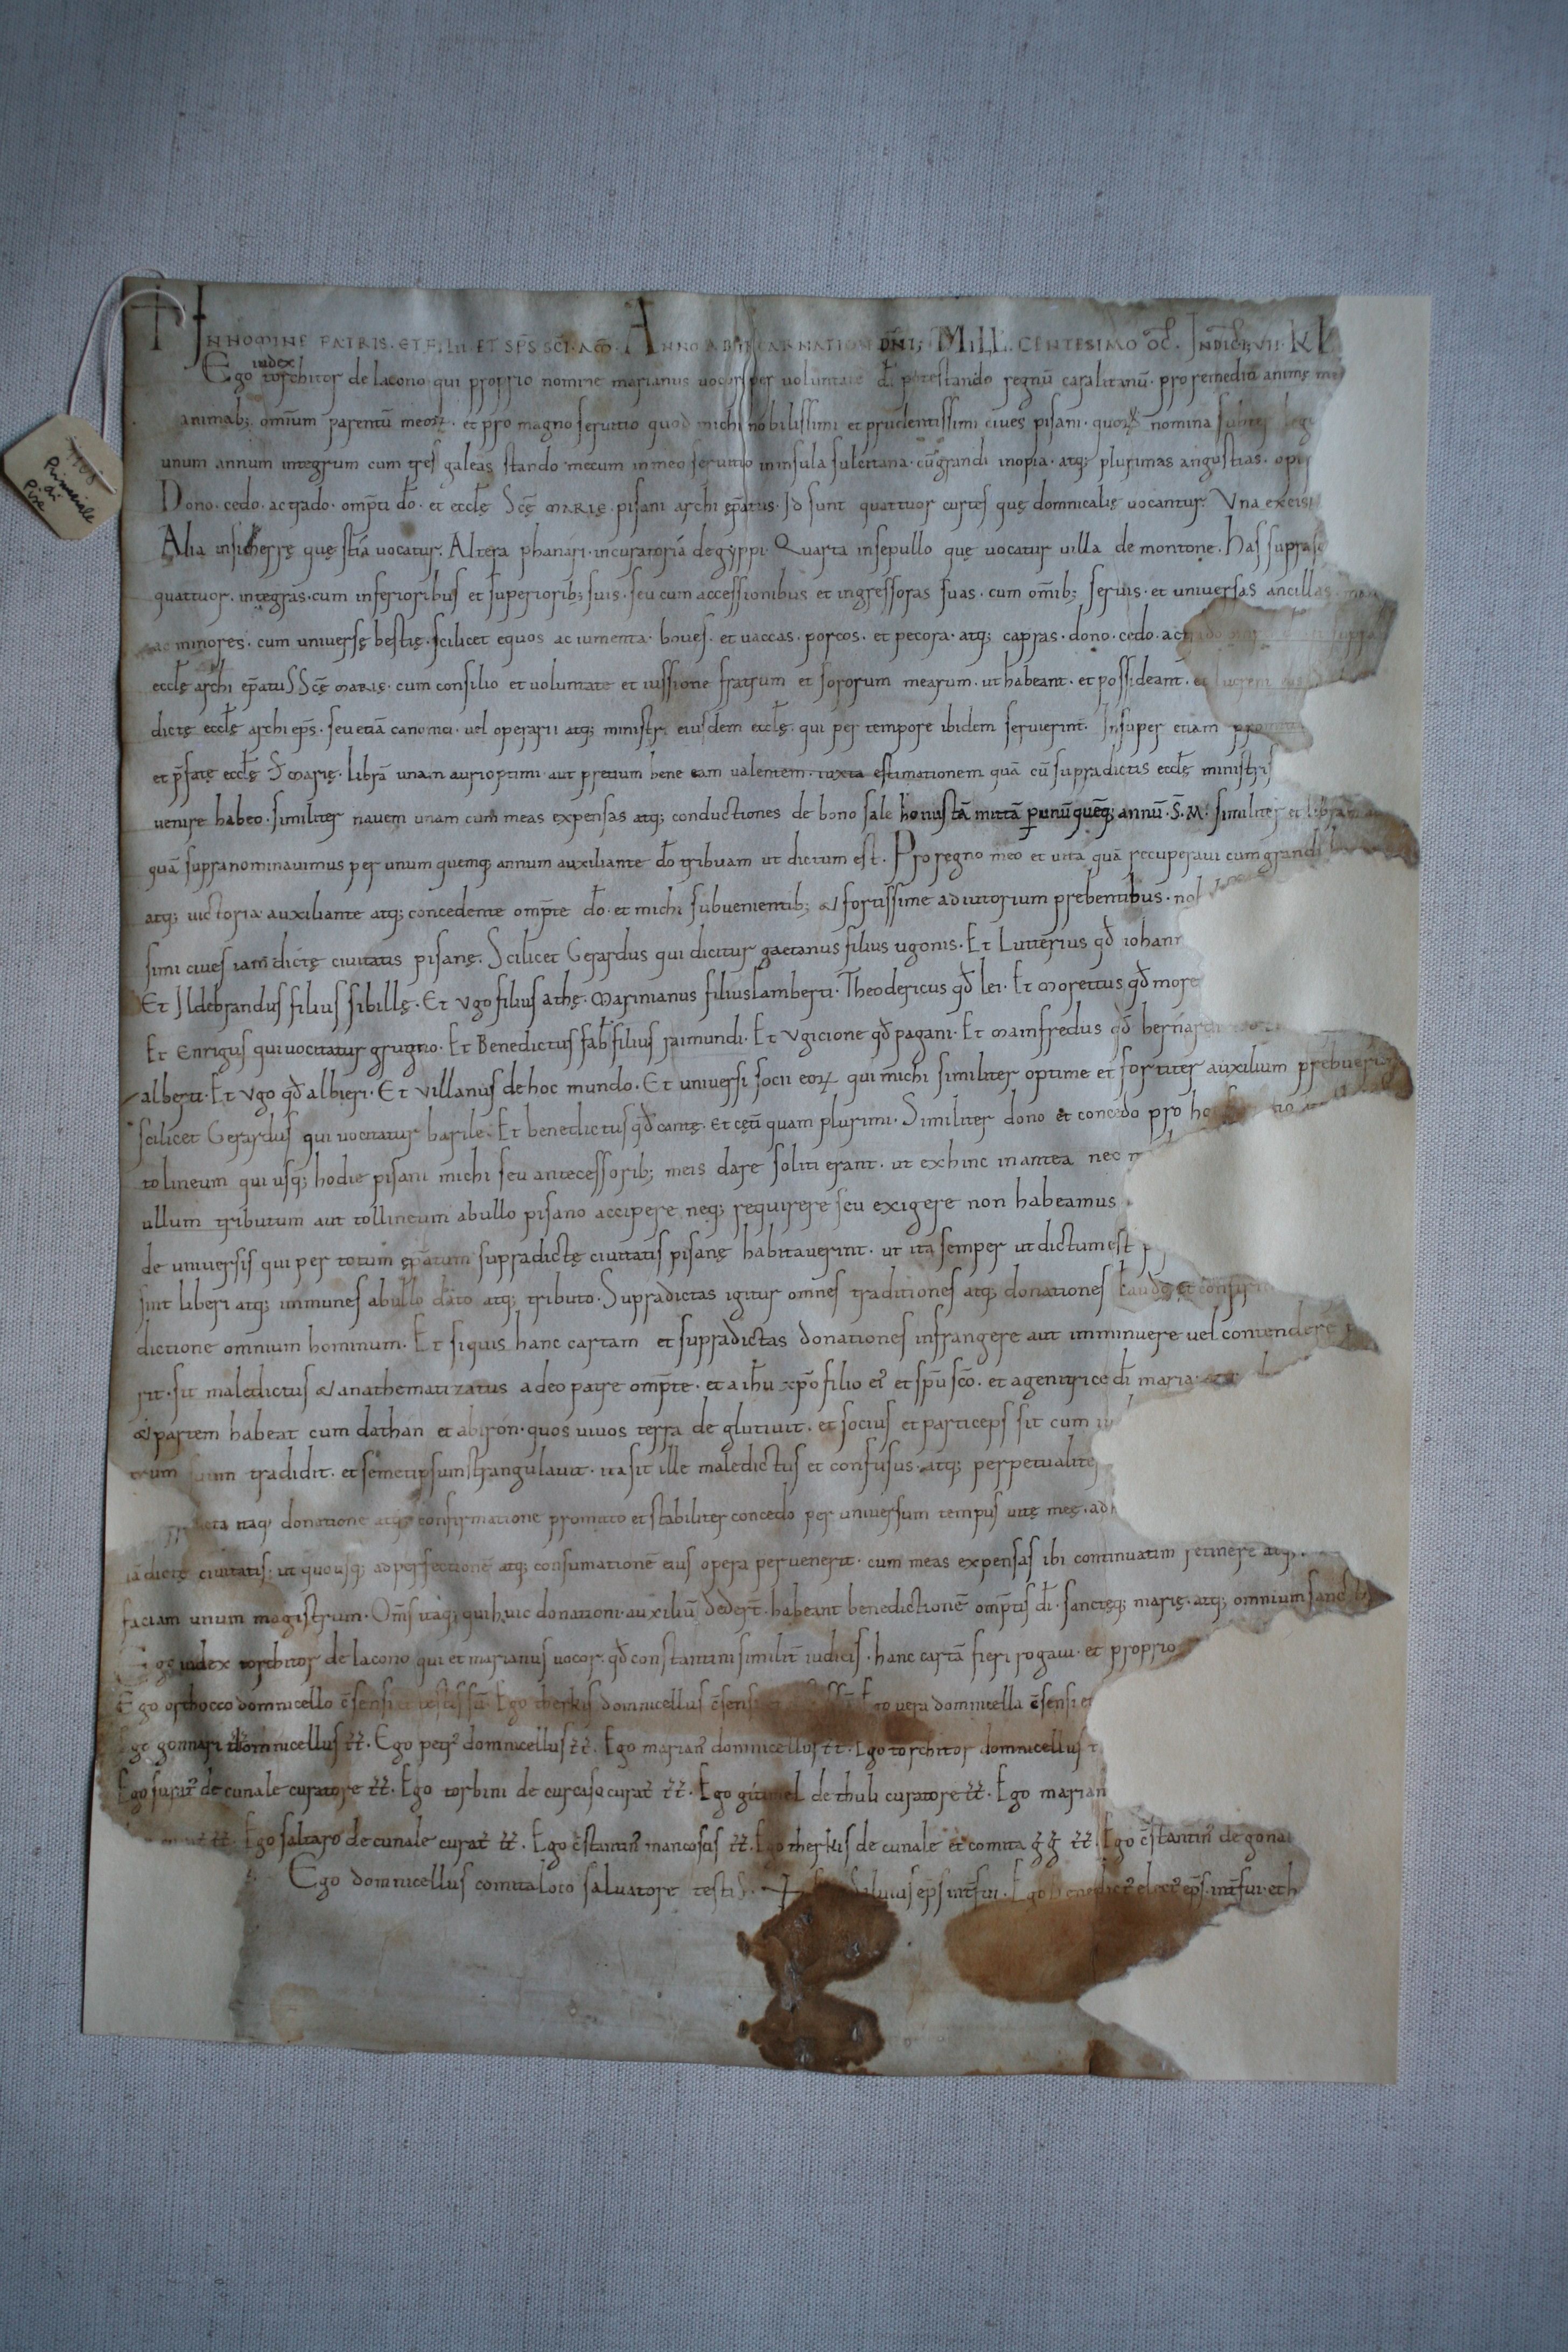 IN NOMINE PATRIS. ET FILII. ET SP̅S SC̅I. AM̅. ANNO AB INCARNATIONE DN̅I; MILL. CENTESIMO OC̅T. INDICT̅. VII. K̅L
iudex
Ego torchitor de lacono qui proprio nomine marianus vocor per voluntate d̅i potestando regnū caralitanū. pro remediū animę
animab; om̅ium parentū meoꝝ. et pro magno servitio quod michi nobilissimi et prudentissimi cives pisani. quoꝝ nomina
unum annum integrum cum tres galeas stando mecum in meo servitio in insula sulcitana. cū grandi inopia. atq; plurimas angustias.
Dono. cedo. ac trado. omp̅ti d̅o. et eccl̅ę Sc̅ę MARIĘ. pisani archi ep̅atus. Id sunt quattuor curtes quę domnicalię vocantur. Una
Alia in sicherrę quę stia vocatur. Altera phanari. in curatoria de gyppi. Quarta in sepullo quę vocatur villa de montone. Has
quattuor. integras. cum inferioribus et superiorib; suis. seu cum accessionibus et ingressoras suas. cum om̅ib; servis. et universas ancillas
ac minores. cum universę bestię. scilicet equos ac iumenta. boves. et vaccas. porcos. et pecora. atq; capras. dono. cedo.
eccl̅ę archi ep̅atus Sc̅ę MARIĘ. cum consilio et voluntate et iussione fratrum et sororum mearum. ut habeant. et possideant.
dictę eccl̅ę archi ep̅s. seu etiā canonici. vel operarii atq; ministri eiusdem eccl̅ę. qui per tempore ibidem servierint. Insuper etiam
et p̅fatę eccl̅ę S̅ marię. librā unam auri optimi. aut pretium bene eam valentem. iuxta estimationem quā cū supradictis eccl̅ę
venire habeo. similiter navem unam cum meas expensas atq; conductiones de bono sale honustā mittā p̱ unū quēq; annū. S̅. M̅. similiter et
quā supra nominavimus per unum quemq; annum auxiliante d̅o tribuam ut dictum est. Pro regno meo et vita quā recuperavi cum grandi
atq; victoria auxiliante atq; concedente omp̅te d̅o. et michi subvenientib; & fortissime adiutorium prebentibus.
simi cives iam dictę civitatis pisanę. Scilicet Gerardus qui dicitur gaetanus filius ugonis. Et Lutterius qd̅
Et Ildebrandus filius sibillę. Et Ugo filius athę. Marinianus filius Lamberti. Theodericus qd̅ lei. Et Morettus qd̅
Et Enrigus qui vocitatur grugno. Et Benedictus fab̅ filius raimundi. Et Ugicione qd̅ pagani. Et Mainfredus qd̅
alberti. Et Ugo qd̅ albieri. Et villanus de hoc mundo. Et universi socii eoꝝ qui michi similiter optime et fortiter auxilium
scilicet Gerardus qui vocitatur barile. Et benedictus qd̅ cantę. et cęti quam plurimi. Similiter dono et concedo pro
tolineum qui usq; hodie pisani michi seu antecessorib; meis dare soliti erant. ut exhinc in antea nec
ullum tributum aut tollineum ab ullo pisano accipere neq; requirere seu exigere non habeamus
de universis qui per totum ep̅atum supradictę civitatis pisanę habitaverint. ut ita semper ut dictum est
sint liberi atq; immunes ab ullo dato atq; tributo. Supradictas igitur omnes traditiones atq; donationes
dictione omnium hominum. Et si quis hanc cartam et supradictas donationes infrangere aut imminuere vel contendere
rit. sit maledictus & anathematizatus a deo patre omp̅te. et a ih̅u xp̅o filio ei᾽ et sp̅u sc̅o. et a genitrice d̅i maria.
& partem habeat cum dathan et abiron. quos vivos terra deglutivit. et socius et particeps sit cum
suum tradidit. et semetipsum strangulavit. ita sit ille maledictus et confusus. atq;
itaq; donatione atq; confirmatione promitto et stabiliter concedo per universum tempus vitę meę.
iā dictę civitatis. ut quousq; ad perfectionē atq; consumationē eius opera pervenerit. cum meas expensas ibi continuatim retinere
faciam unum magistrum. Om̅s itaq; qui huic donationi auxiliū dedert̅. habeant benedictionē omp̅tis d̅i. sanctęq; marię. atq; omnium
iudex torchitor de lacono qui et marianus vocor. qd̅ constantini similit̅ iudicis. hanc cartā fieri rogavi. et proprio
Ego orthocco domnicello c̅sensi et testis sū. Ego therkis domnicellus c̅sensi Ego vera domnicella c̅sensi
gonnari domnicellus t̅t̅. Ego petr᾽ domnicellus t̅t̅. Ego marian᾽ domnicellus t̅t̅. Ego torchitor domnicellus
Ego furat᾽ de cunale curatore t̅t̅. Ego torbini de curcaso curat̅ t̅t̅. Ego de thuli curatore t̅t̅. Ego
Ego saltaro de cunale curat̅ t̅t̅. Ego c̅stantin᾽ mancosus t̅t̅. Ego therkis de cunale et comita t̅t̅. Ego c̅stantin᾽ de
Ego domnicellus comita loco salvatore testis. ep̅s int̅fui. Ego Benedict᾽ elect᾽ ep̅s. int̅fui.
Primaziale di Pisa